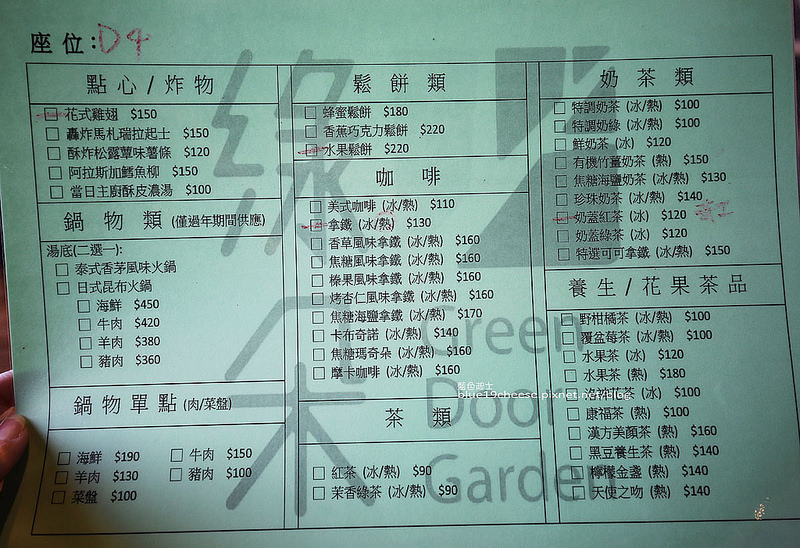 座位:D4
點心/炸物
花式雞翅 $150
轟炸馬札瑞拉起士 $150
酥炸松露蕈味薯條 $120
阿拉斯加鱈魚柳 $150
當日主廚酥皮濃湯 $100
鍋物類 (僅過年期間供應)
湯底(二選一):
泰式香茅風味火鍋
日式昆布火鍋
海鮮 $450
牛肉 $420
羊肉 $380
豬肉 $360
鍋物單點 (肉/菜盤)
海鮮 $190 牛肉 $150
羊肉 $130 豬肉 $100
菜盤 $100
鬆餅類
蜂蜜鬆餅 $180
香蕉巧克力鬆餅 $220
水果鬆餅 $220
咖啡
美式咖啡 (冰/熱) $110
拿鐵 (冰/熱) $130
香草風味拿鐵 (冰/熱) $160
焦糖風味拿鐵 (冰/熱) $160
榛果風味拿鐵 (冰/熱) $160
烤杏仁風味拿鐵 (冰/熱) $160
焦糖海鹽拿鐵 (冰/熱) $170
卡布奇諾 (冰/熱) $140
焦糖瑪奇朵 (冰/熱) $160
摩卡咖啡 (冰/熱) $160
茶類
紅茶 (冰/熱) $90
茉香綠茶 (冰/熱) $90
奶茶類
特調奶茶 (冰/熱) $100
特調奶綠 (冰/熱) $100
鮮奶茶 (冰) $120
有機竹薑奶茶 (熱) $150
焦糖海鹽奶茶 (冰/熱) $130
珍珠奶茶 (冰/熱) $140
奶蓋紅茶 (冰) $120
奶蓋綠茶 (冰) $120
特選可可拿鐵 (冰/熱) $150
養生/花果茶品
野柑橘茶 (冰/熱) $100
覆盆莓茶 (冰/熱) $100
水果茶 (冰) $120
水果茶 (熱) $180
洛神花茶 (冰) $100
康福茶 (熱) $100
漢方美顏茶 (熱) $160
黑豆養生茶 (熱) $140
檸檬金盞 (熱) $140
天使之吻 (熱) $140
綠朵
Green
Door
Garden
藍色起士
blue19cheese.pixnet.net/blog